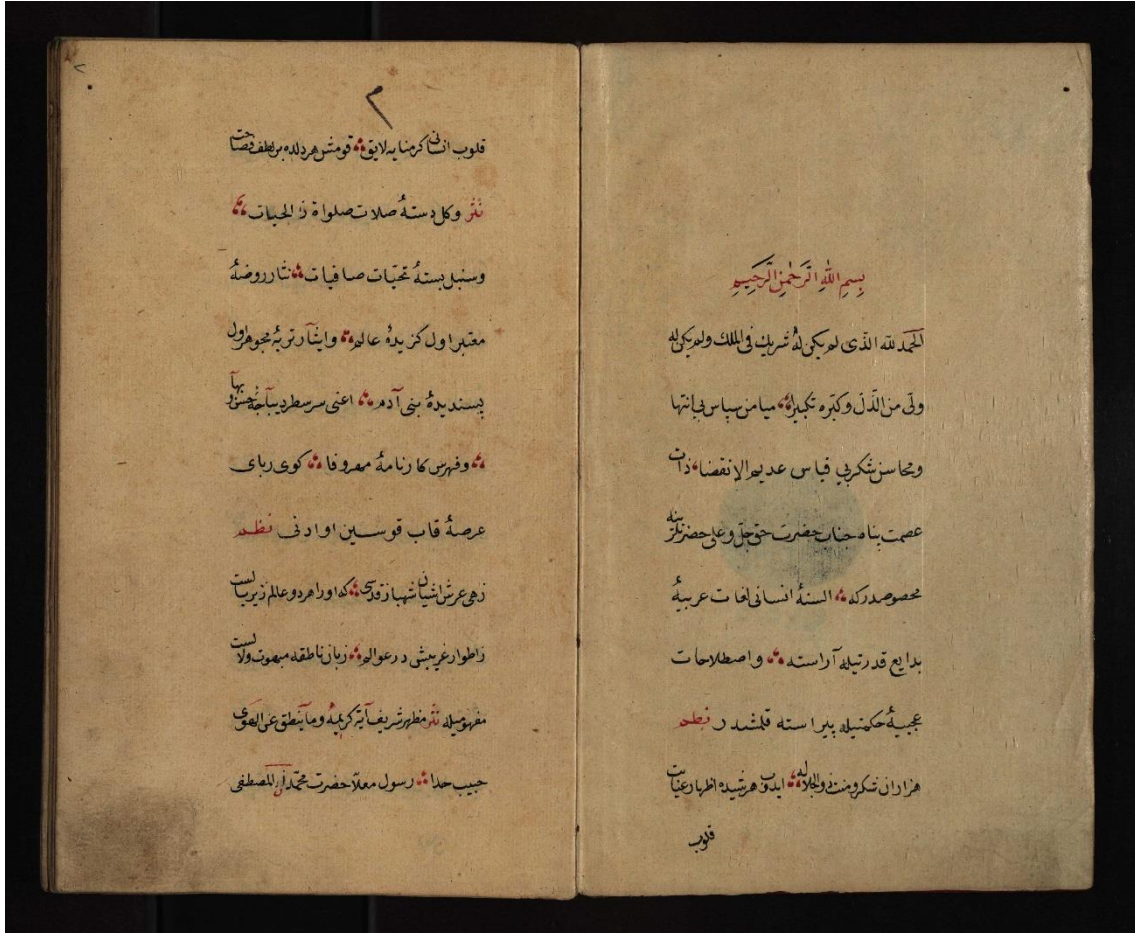 بِسْمِ اللّٰهِ الرَّحْمٰنِ الرَّحِيمِ
الحمد لله الذى لم يكن له شريك فى الملك ولم يكن له
ولى من الذل وكبره تكبيرا ميامن سپاس بى انتها
ومحاسن شكر بى قياس عديم الانقضا ذات
عصمت پناه جناب حضرت حق جل وعلى حضرتلرينه
مخصوصدركه السنۀ انسانى لغات عربيۀ
بدايع قدرتيله آراسته واصطلاحات
عجيبۀ حكمتيله پيراسته قلمشدر نظم
هزاران شكر ومنت ذو الجلاله ايدوب هر شيده اظهار عنايات
قلوب
٢
قلوب انسانى كرمنايه لايق قومش هر دلده بر لطف فصاحت
نثر وكل دستۀ صلات صلواة
وسنبل بستۀ تحيات صافيات نثار روضۀ
معتبر اول كزيدۀ عالم وايثار تربۀ مجوهر اول
پسنديدۀ بنى آدم اعنى سر سطر ديباجۀ حسن وبها
وفهرس كارنامۀ مهر وفا كوى رباى
عرصۀ قاب قوسين او ادنى نظم
زهى عرش اشيان شهباز قدسى كه اورا هر دو عالم زير بالست
زاطوار غريبش در عوالم زبان ناطقه مبهوت ولالست
مفهوميله نثر مظهر شريف آيۀ كريمۀ وما ينطق عن الهوى
حبيب خدا رسول معلا حضرت محمد المصطفى